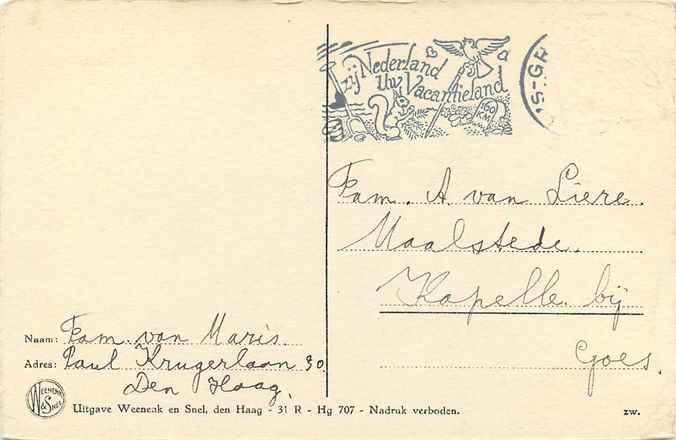 zij Nederland
Uw Vacantieland
160
KM
'S-GR
Fam. A. van Liere.
Maalstede.
Kapelle. bij
Goes.
Naam: Fam. van Maris.
Adres: Paul Krugerlaan 30.
Den Haag.
WEENENK
& SNEL
Uitgave Weenenk en Snel, den Haag - 31 R - Hg 707 - Nadruk verboden.
zw.